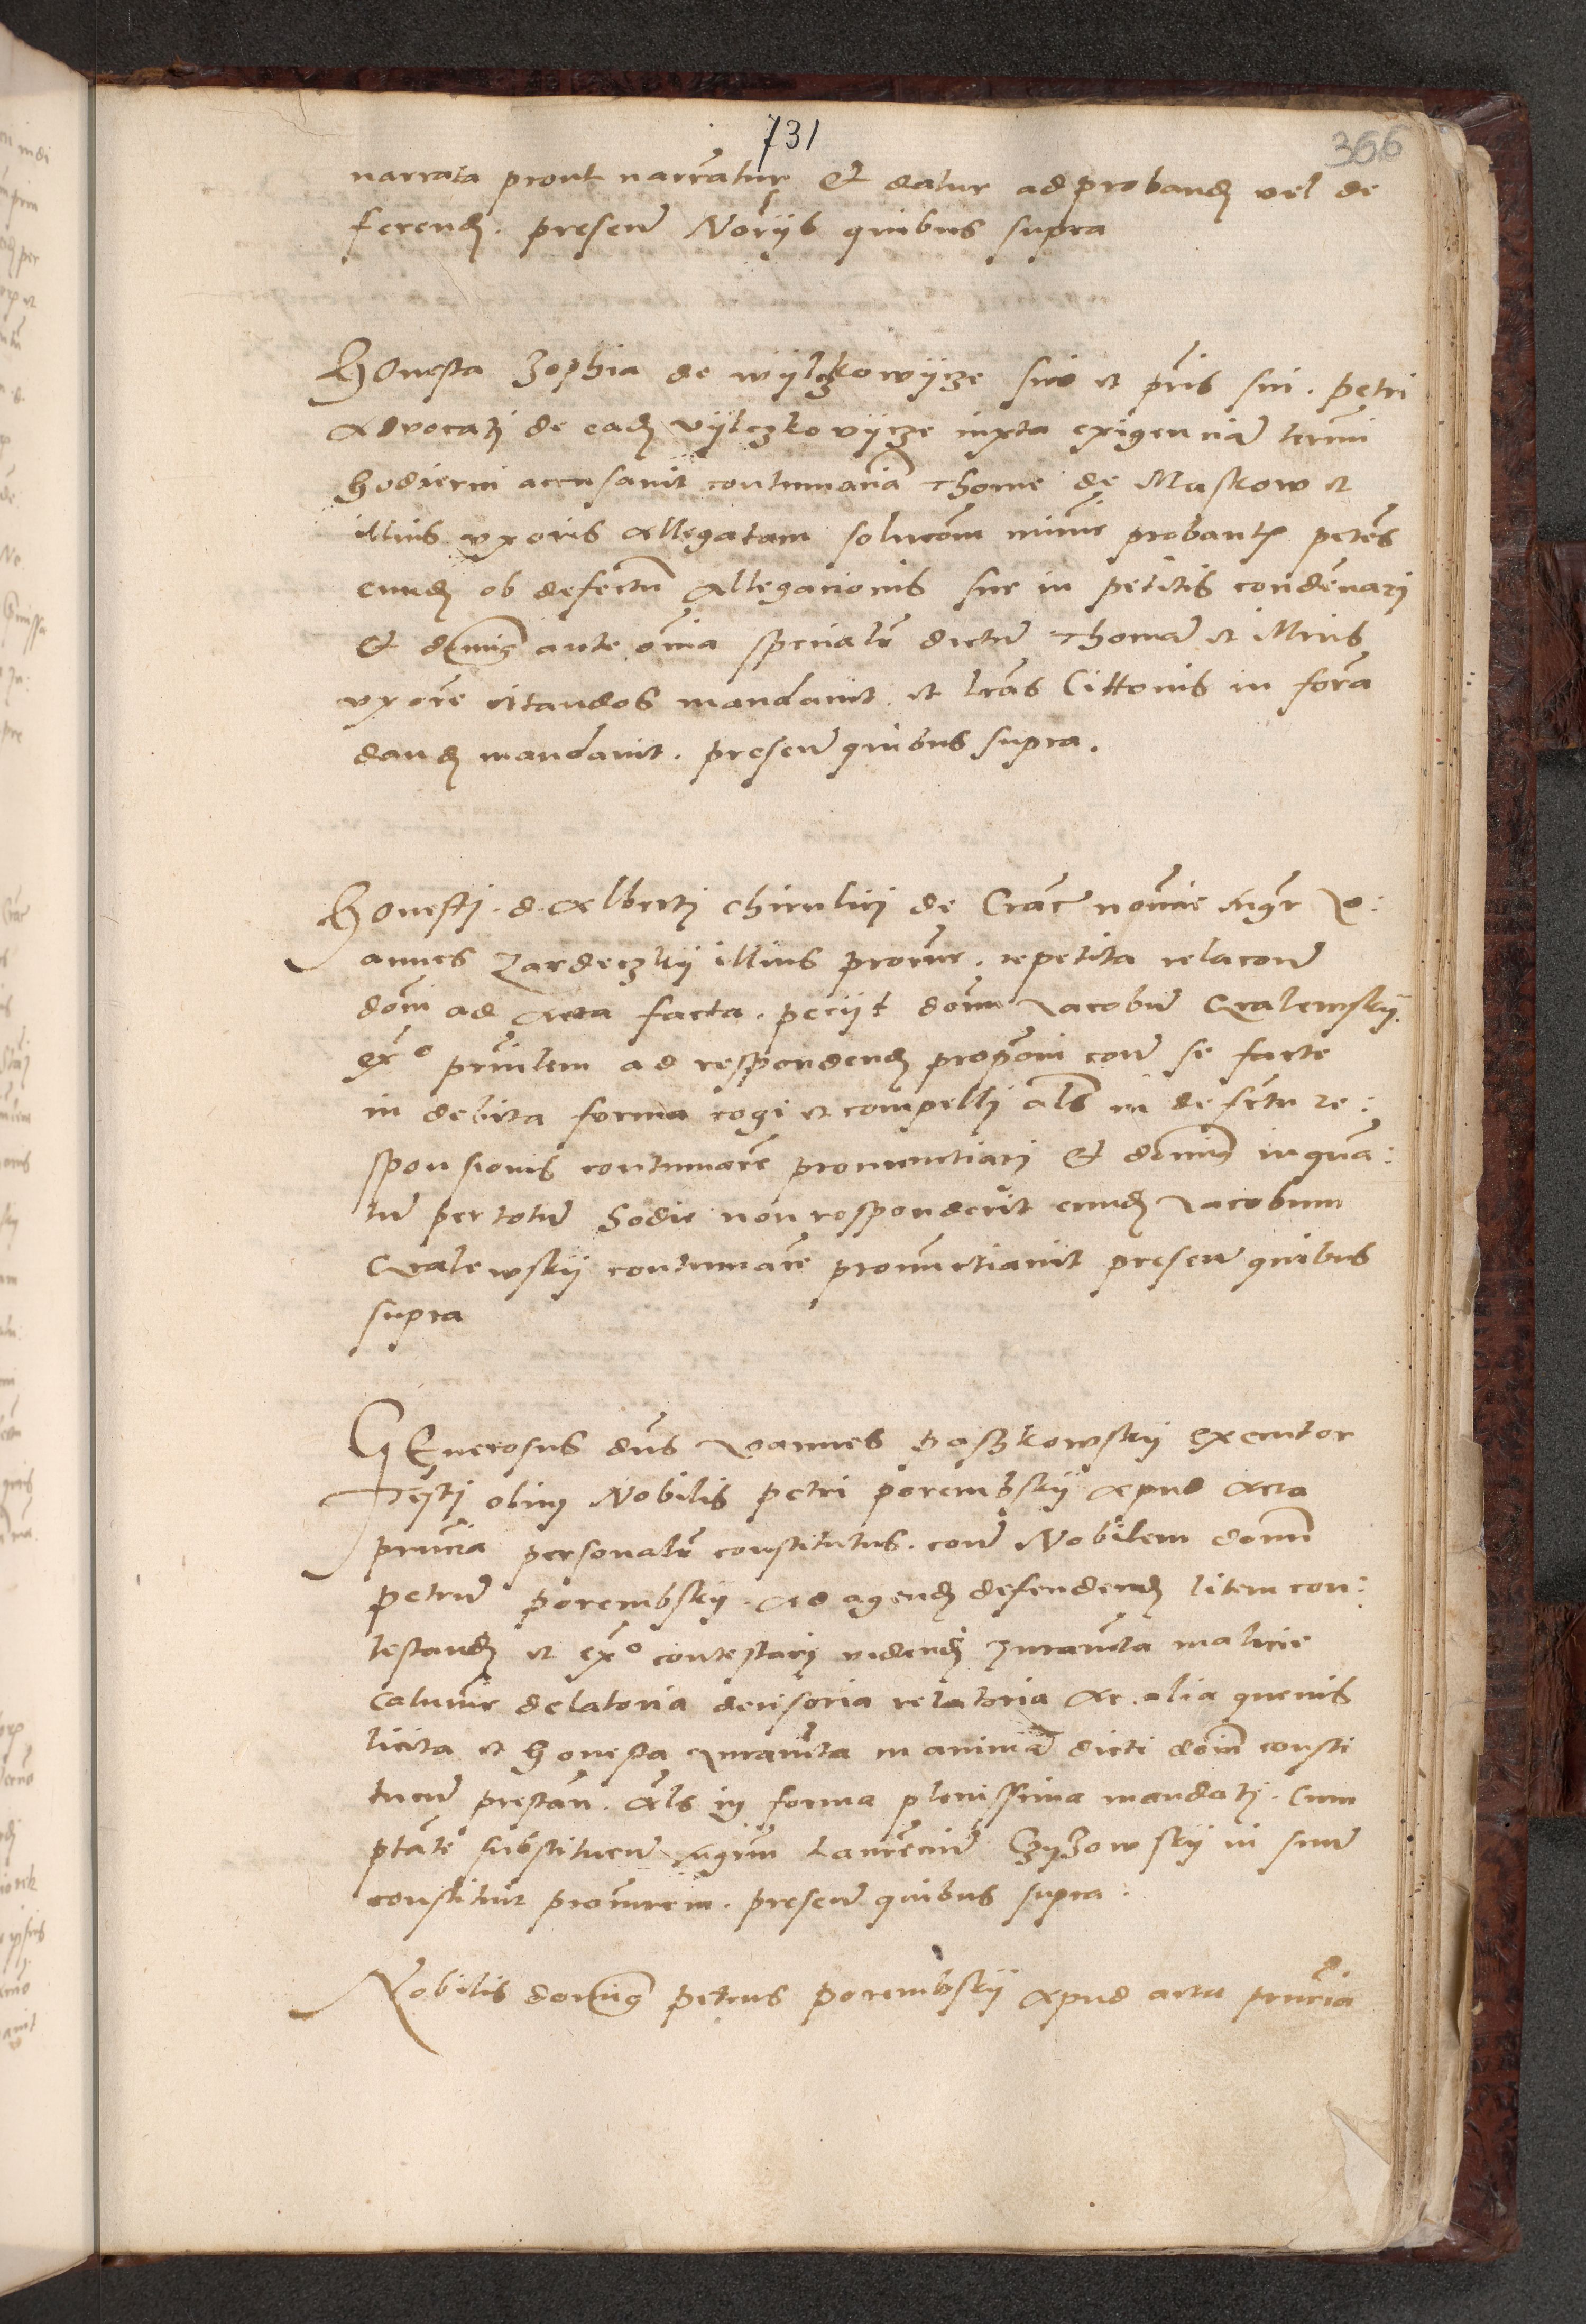 731
366
narrata prout narratur et datur ad proband vel de
ferend. presen Norijs quibus supra
Honesta Zophia de wylczkowycze suo et pris sui. petri
Advocati de eadz vylczkovycze iuxta exigencia termi
hodierni accusavit contumacia Thome de Maskow et
illius uxoris allegatam solucom minie probant petes
eundz ob defectu allegacionis sue in petitis condenari
et dominus ante omia specialr dictu Thoma et illius
uxore citandos mandavit et lras Cittonis in forma
dand mandavit. presen quibus supra.
Honesti. d. Alberti chirulici de Crac nomie Magr Io:
annes Zardeczkij illius procur. repetita relacone
dom ad Acta facta. peciit dom Iacobu Cralewskij
exo pnilem ad respondend proponi con se facte
in debita forma cogi et compelli als in defectu re:
sponsionis contumace pronunctiari et dominus in quan:
tu per totu hodie non responderit eundz Iacobum
Cralewskij contumace pronunctiavit presen quibus
supra
GEnerosus dns Ioannes paszkowskij executor
Testi olim Nobilis petri porembskij apud acta
pncia personalr constitutus. con Nobilem dom
petru porembskij. ad agend defendend litem con:
testand et exo contestari vidend Iuramta malicie
calumie delatoria decisoria relatoria ac alia quevis
licita et honesta Iuramta in anima dicti dom consti
tuen prestan. als in forma plenissima mandati. Cum
ptate substituen Magrum Laurenciu Czyzowskij in suum
constituit procurem. presen quibus supra.
Nobilis dominus petrus porembskij apud acta pncia